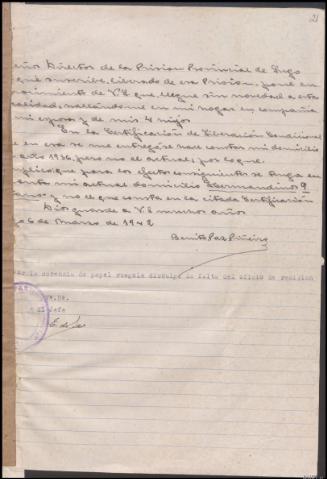 21
eñor Director de la Prision Provincial de Lugo
que suscribe, liberado de esa Prision, pone en
nocimiento de V.S que, llegue sin novedad a esta
calidad, hallandome en mi hogar en compañia
mi esposa y de mis 4 hijos
En la Certificación de Liberación Condicional
en esa se me entregó se hace constar mi domicilio
año 1936, pero no el actual, por lo que
plico que para los efectos consiguientes se tenga en
enta mi actual domicilio 9
y no el que consta en la citada Certificación
Dios guarde a V.S muchos años
o 6 de Marzo de 1942
Benito Paz Piñeiro
por la carencia de papel ruegole disculpe la falta del oficio de remision